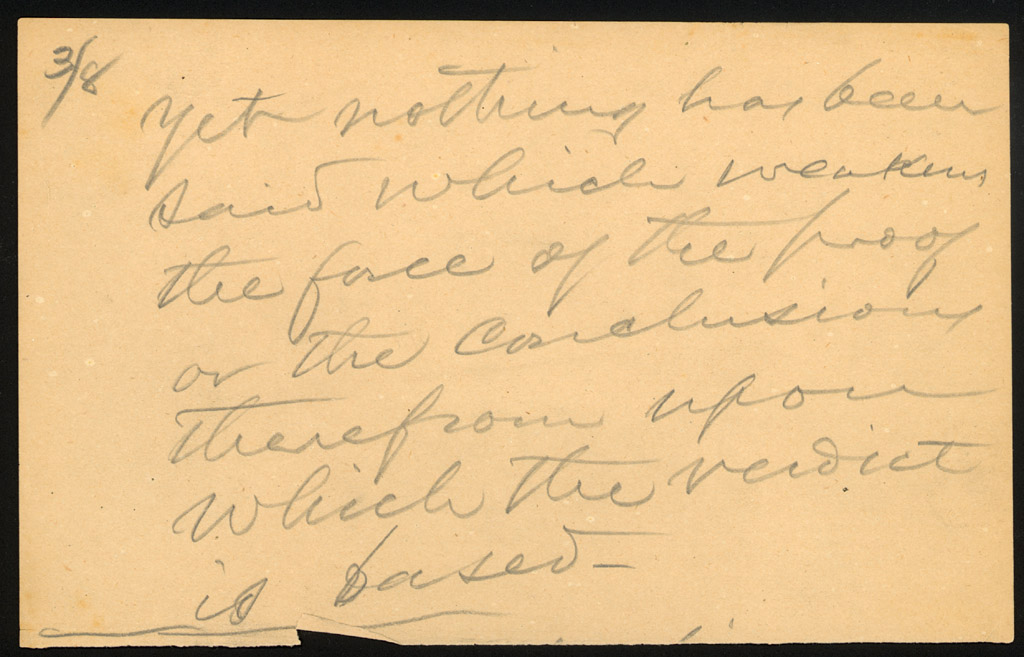 3/8
Yet nothing has been
said which weakens
the force of the proof
or the conclusions
therefrom upon
which the verdict
is based—